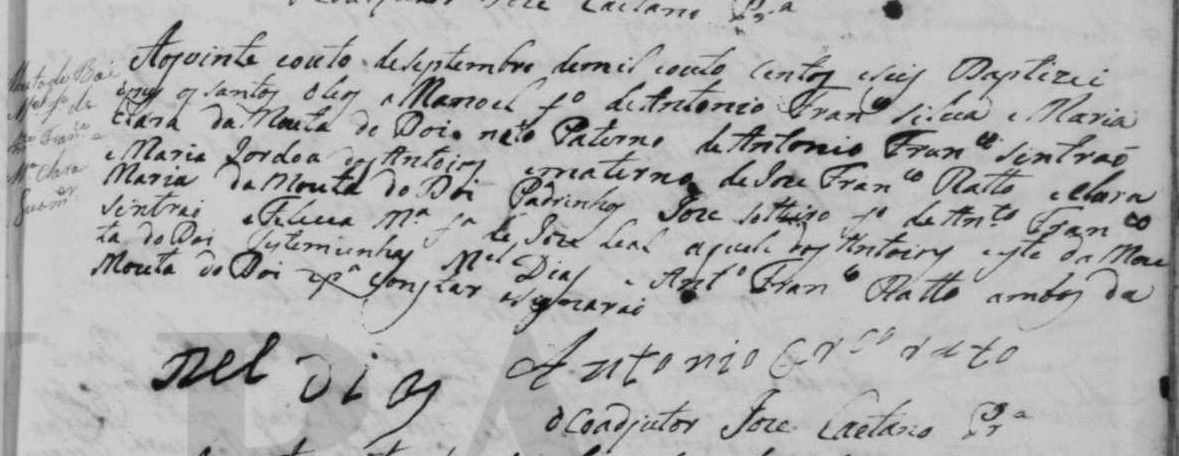 Coadjutor Joze Caetano Pr.ª
Mouta do Boi
Mel fº de
Franco
Mª Clara
Aos vinte e outo de septembro de mil e outo centos e seis Baptizei
e pus os santos oleos a Manoel fº de Antonio Franco Silva e Maria
Clara da Mouta do Boi e neto Paterno de Antonio Franco Sintrão
e Maria Jordoa dos Antoins e materno de Joze Franco Ratto e Clara
Maria da Mouta do Boi Padrinhos Joze solteiro fº de Anto Franco
sintrai e Mª fª de Joze Leal aquele dos Antoins e esta da Mou
ta do Boi e testemunhas Mel Dias e Anto Franco Ratto ambos da
Mouta do Boi e pª constar asignarão
nel dias Antonio rato
O Coadjutor Joze Caetano Pr.ª